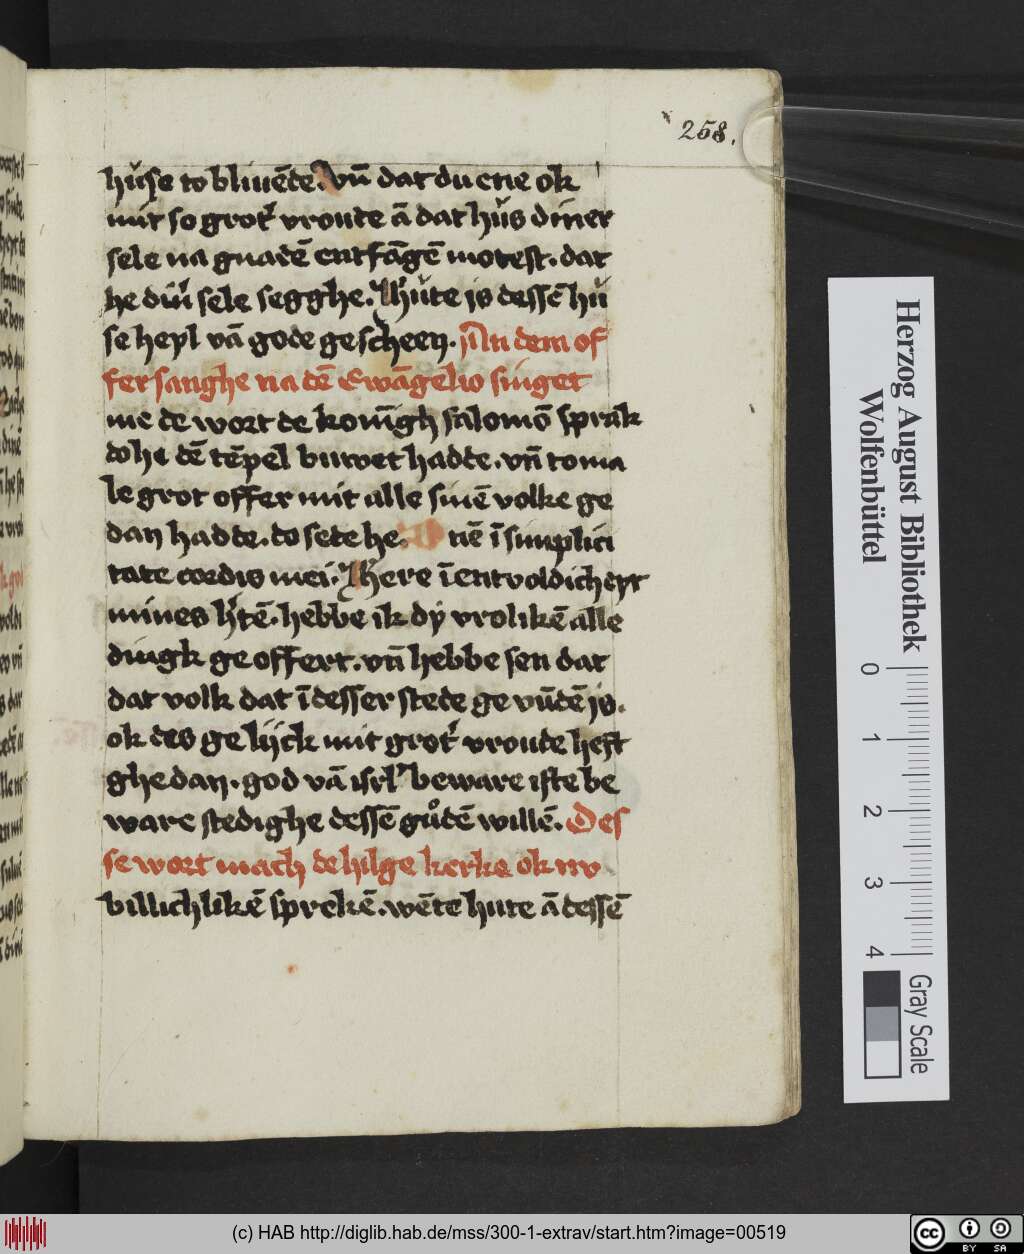 258.
hu̍se to bliuēde. vn̄ dat du ene ok
mit so grot' vroude ā dat hu̍s diner
sele na gnadē entfāgē motest. dat
he din' sele segghe. Hu̍te is dessē hu̍
se heyl vā gode gescheen. In dem of
fer sanghe na dē Ewāgelio singet
me de wort de konīgh salomō sprak
do he dē tēpel buwet hadde. vn̄ to ma
le grot offer mit alle sinē volke ge
dan hadde. do sede he. D nē ī simplici
tate cordis mei. Here ī entvoldicheyt
mines h'tē. hebbe ik dy vrolikē alle
dingk ge offert. vn̄ hebbe sen dat
dat volk dat ī desser stede ge vūdē is.
ok des ge lijck mit grot' vroude heft
ghe dan. god vā isrl' beware ifte be
ware stedighe dessē gůdē willē. Des
se wort mach de hilge kerke ok nv
billichlikē sprekē. wēte hute ā dessē
Herzog August Bibliothek
Wolfenbüttel
0 1 2 3 4
Gray Scale
(c) HAB http://diglib.hab.de/mss/300-1-extrav/start.htm?image=00519
cc BY SA